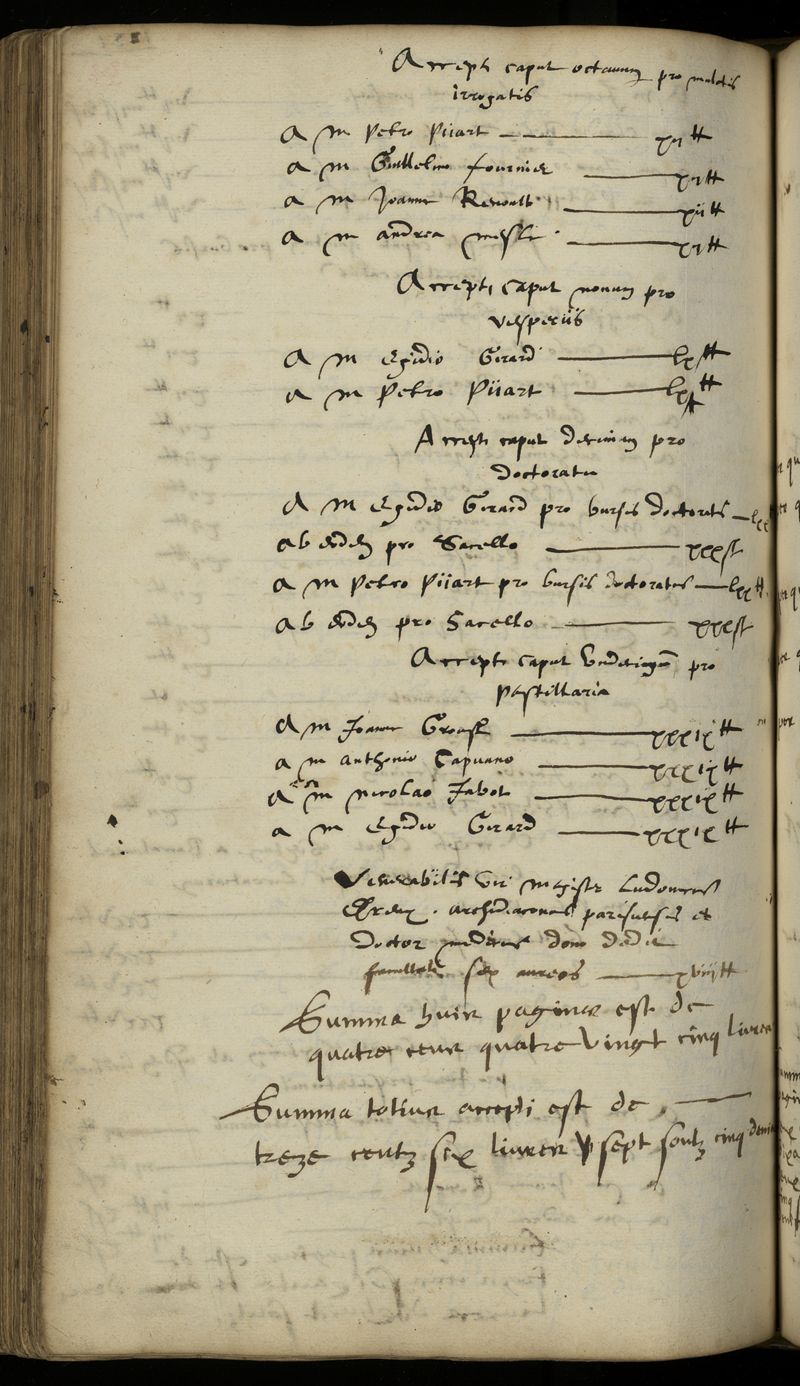 Accepti caput octavum pro mulctis
irrogatis
A m petro piiart — xii tt
A m Guillelmo fournier — tt
A m Joanne — xii tt
A m andrea — tt
Accepti caput nonum pro
vesperiis
A m Egidio Girard — lx tt
A m petro piiart — lx tt
Accepti caput decimum pro
doctoratu
A m Egidio Girard pro bursis doctoratus —
ab eodem pro Sacello — xxx st
A m petro piiart pro bursis doctoratus — tt
ab eodem pro Sacello — xxx st
Accepti caput undecimum pro
pastillaria
A m Joanne — xxxix tt
A m anthonio Capuano — xxxix tt
A m nicolao Jabot — xxxix tt
A m Egidio Girard — xxxix tt
Venerabilis vir magister Ludovicus
archidiaconus parisiensis et
Doctor medicus dono dedit
facultati sex aureos — xviij tt
Summa huius paginae est de
quatre cens quatre vingt cinq livres
Summa totius accepti est de —
treze centz six livres sept soulz cinq